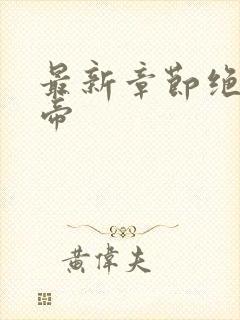 最新章節绝
帝
黄偉夫